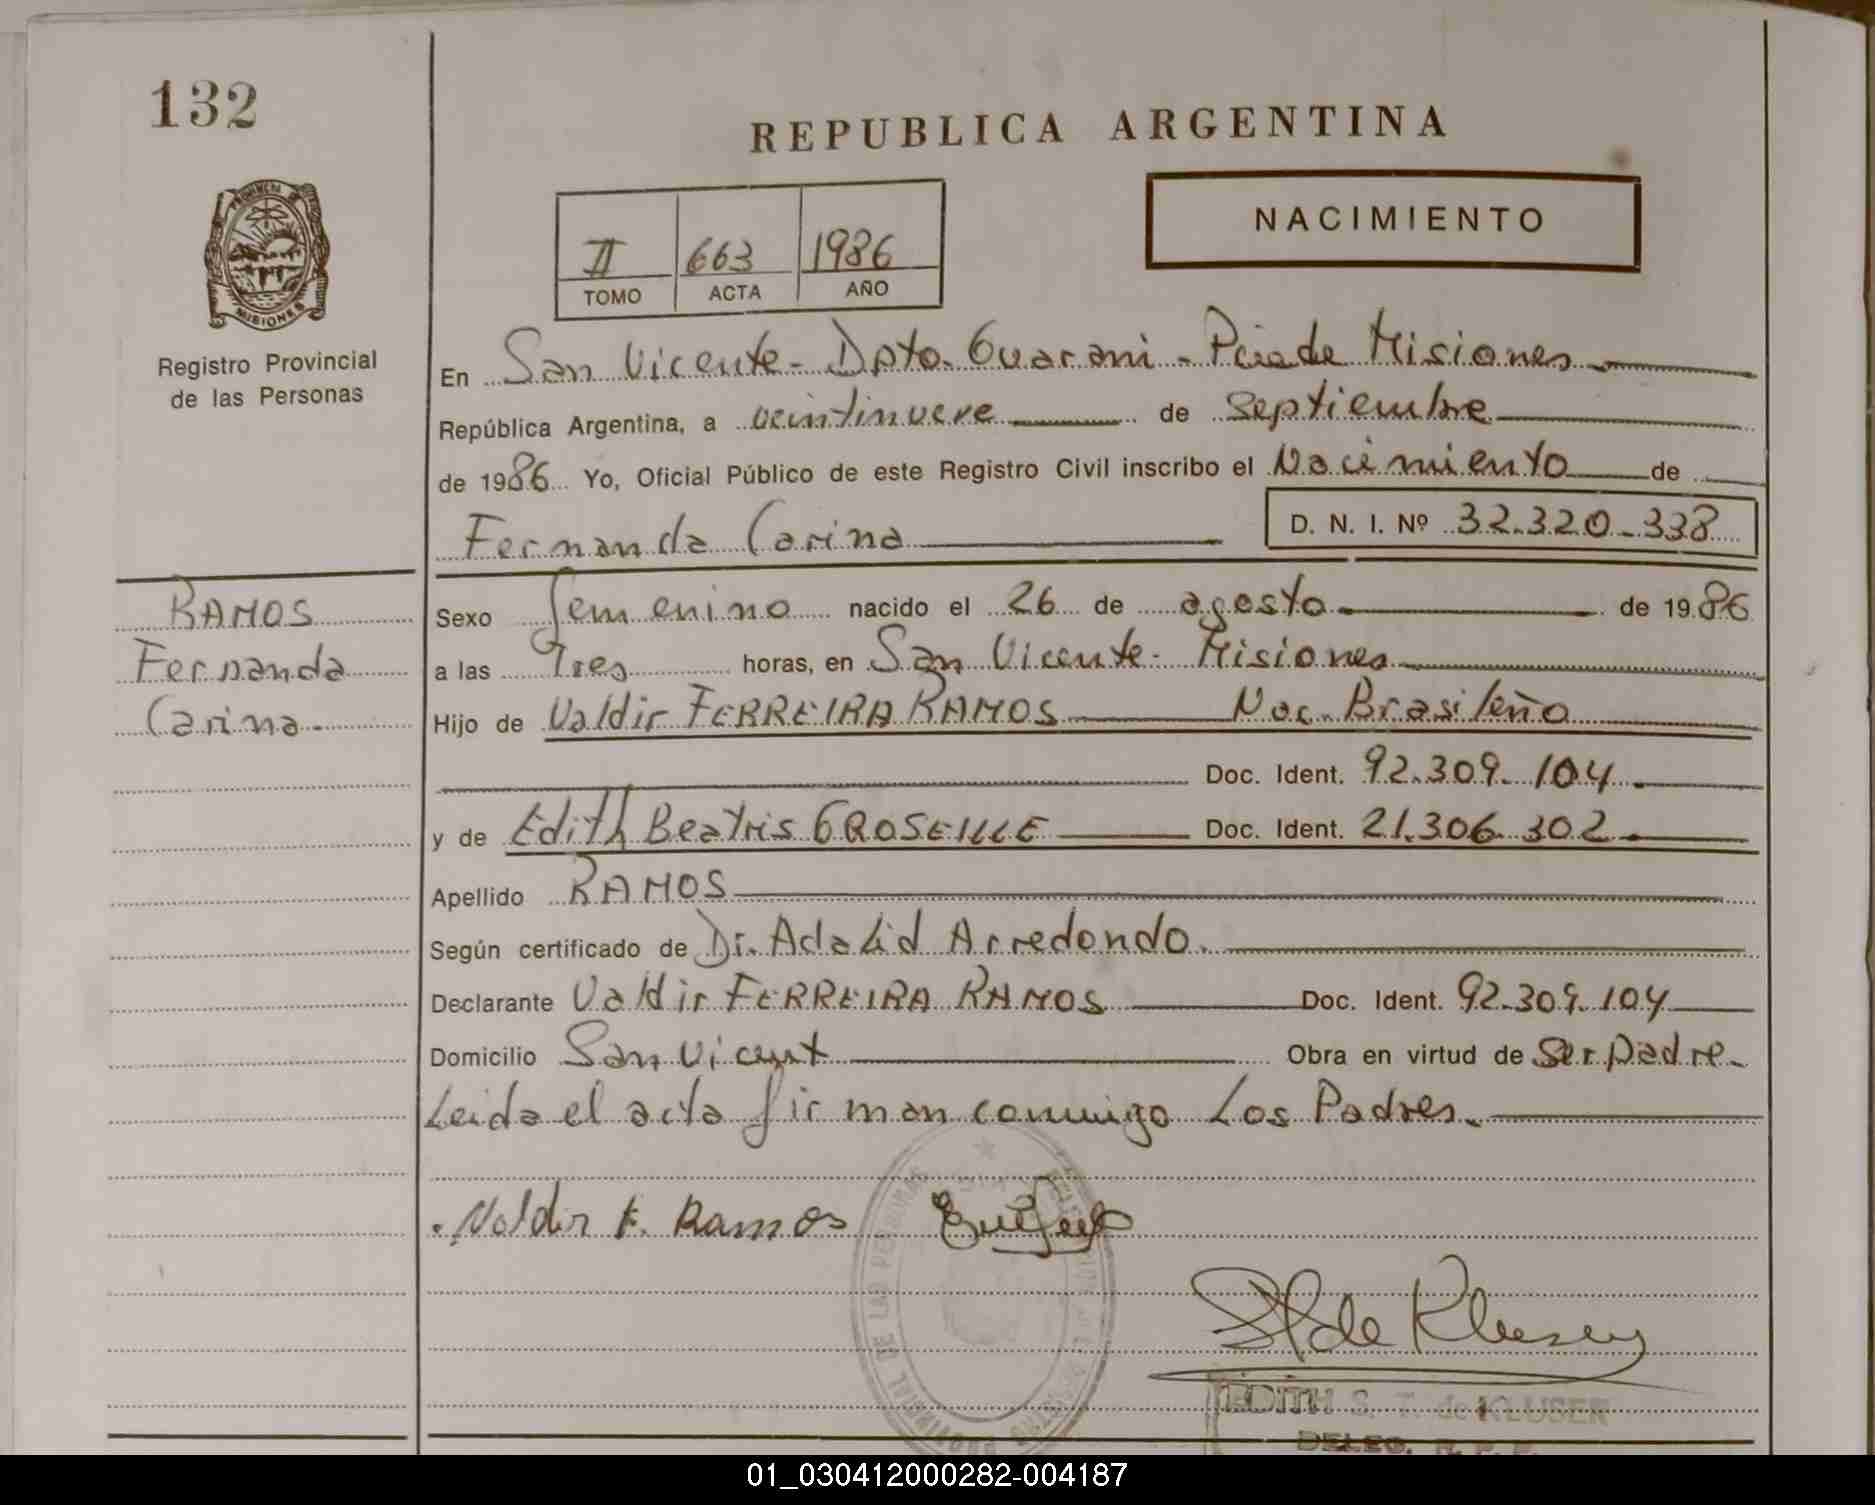 132
REPUBLICA ARGENTINA
NACIMIENTO
II 663 1986
TOMO ACTA AÑO
PROVINCIA DE
MISIONES
Registro Provincial
de las Personas
En San Vicente - Dpto. Guarani - Pciade Misiones
República Argentina, a veintinueve de septiembre
de 1986 Yo, Oficial Público de este Registro Civil inscribo el Nacimiento de
Fernanda Carina D. N. I. Nº 32.320.338
RAMOS
Fernanda
Carina
Sexo femenino nacido el 26 de agosto de 1986
a las Tres horas, en San Vicente - Misiones
Hijo de Valdir FERREIRA RAMOS Nac. Brasileño
Doc. Ident. 92.309.104
y de Edith Beatris GROSEILLE Doc. Ident. 21.306.302
Apellido RAMOS
Según certificado de Dr. Adalid Arredondo.
Declarante Valdir FERREIRA RAMOS Doc. Ident. 92.309.104
Domicilio San Vicent Obra en virtud de Ser Padre
Leida el acta firman conmigo Los Padres.
Valdir F. Ramos
de Kluser
PROVINCIAL DE LAS PERSONAS
EDITH S. T. de KLUSER
DELEG. R. P. P.
01_030412000282-004187